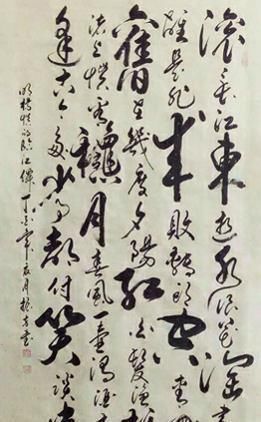 滚滚長江東逝水浪花淘盡
雄是非成敗轉頭空青
舊在幾度夕陽紅白髮漁
渚上慣看龝月春風一壺濁酒
逢古今多少事都付笑談中
明楊慎詞臨江僊 丁酉年